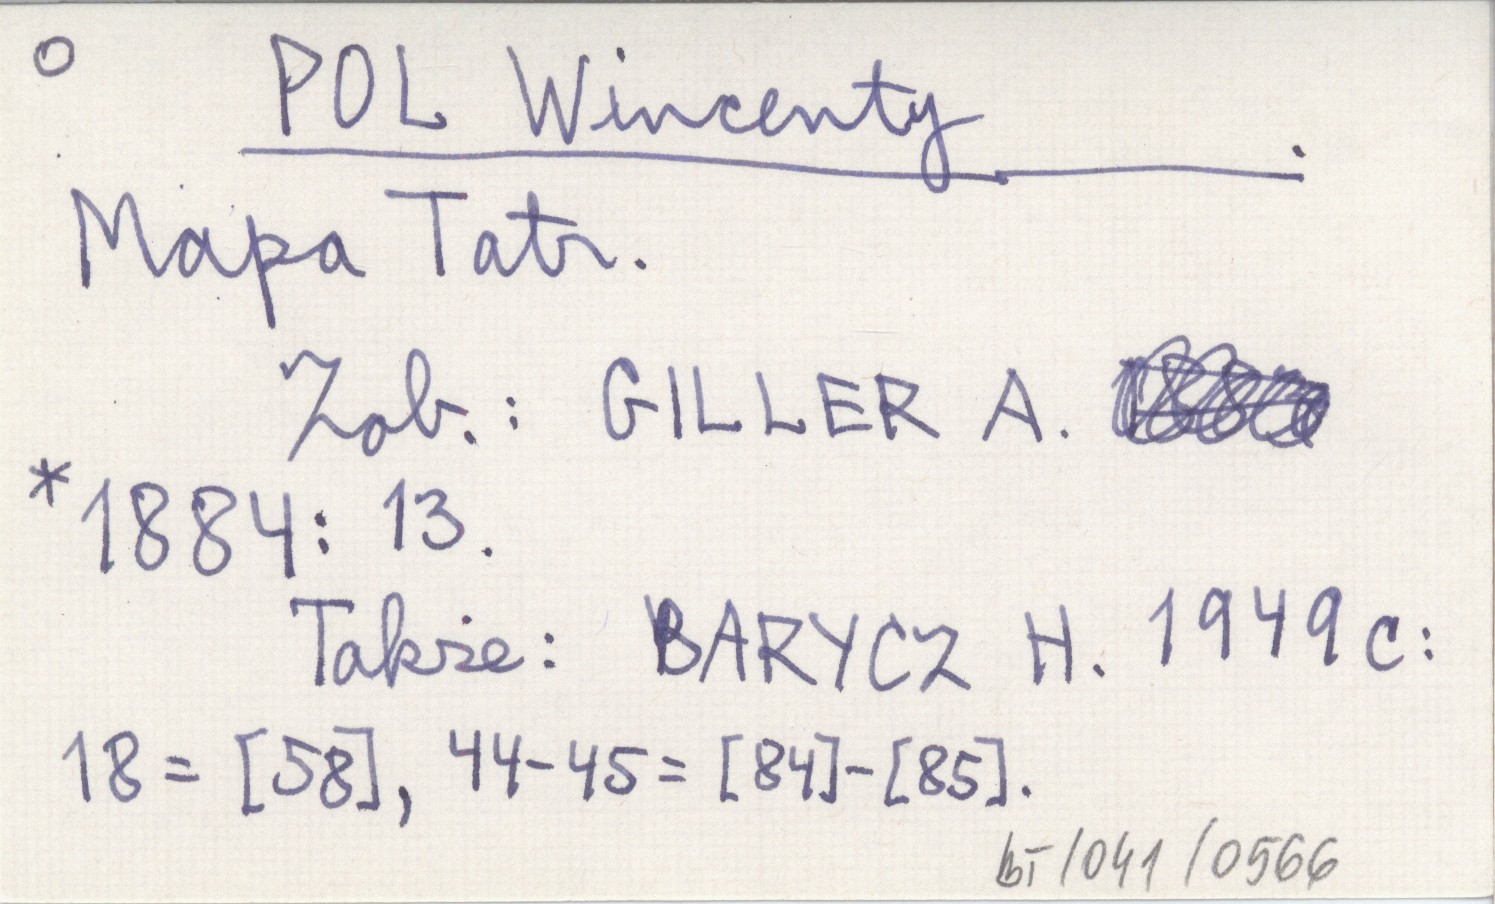 ○ POL Wincenty .
Mapa Tatr.
Zob.: GILLER A.
*1884: 13.
Także: BARYCZ H. 1949 c:
18 = [58], 44-45 = [84]-[85].
bT/041/0566